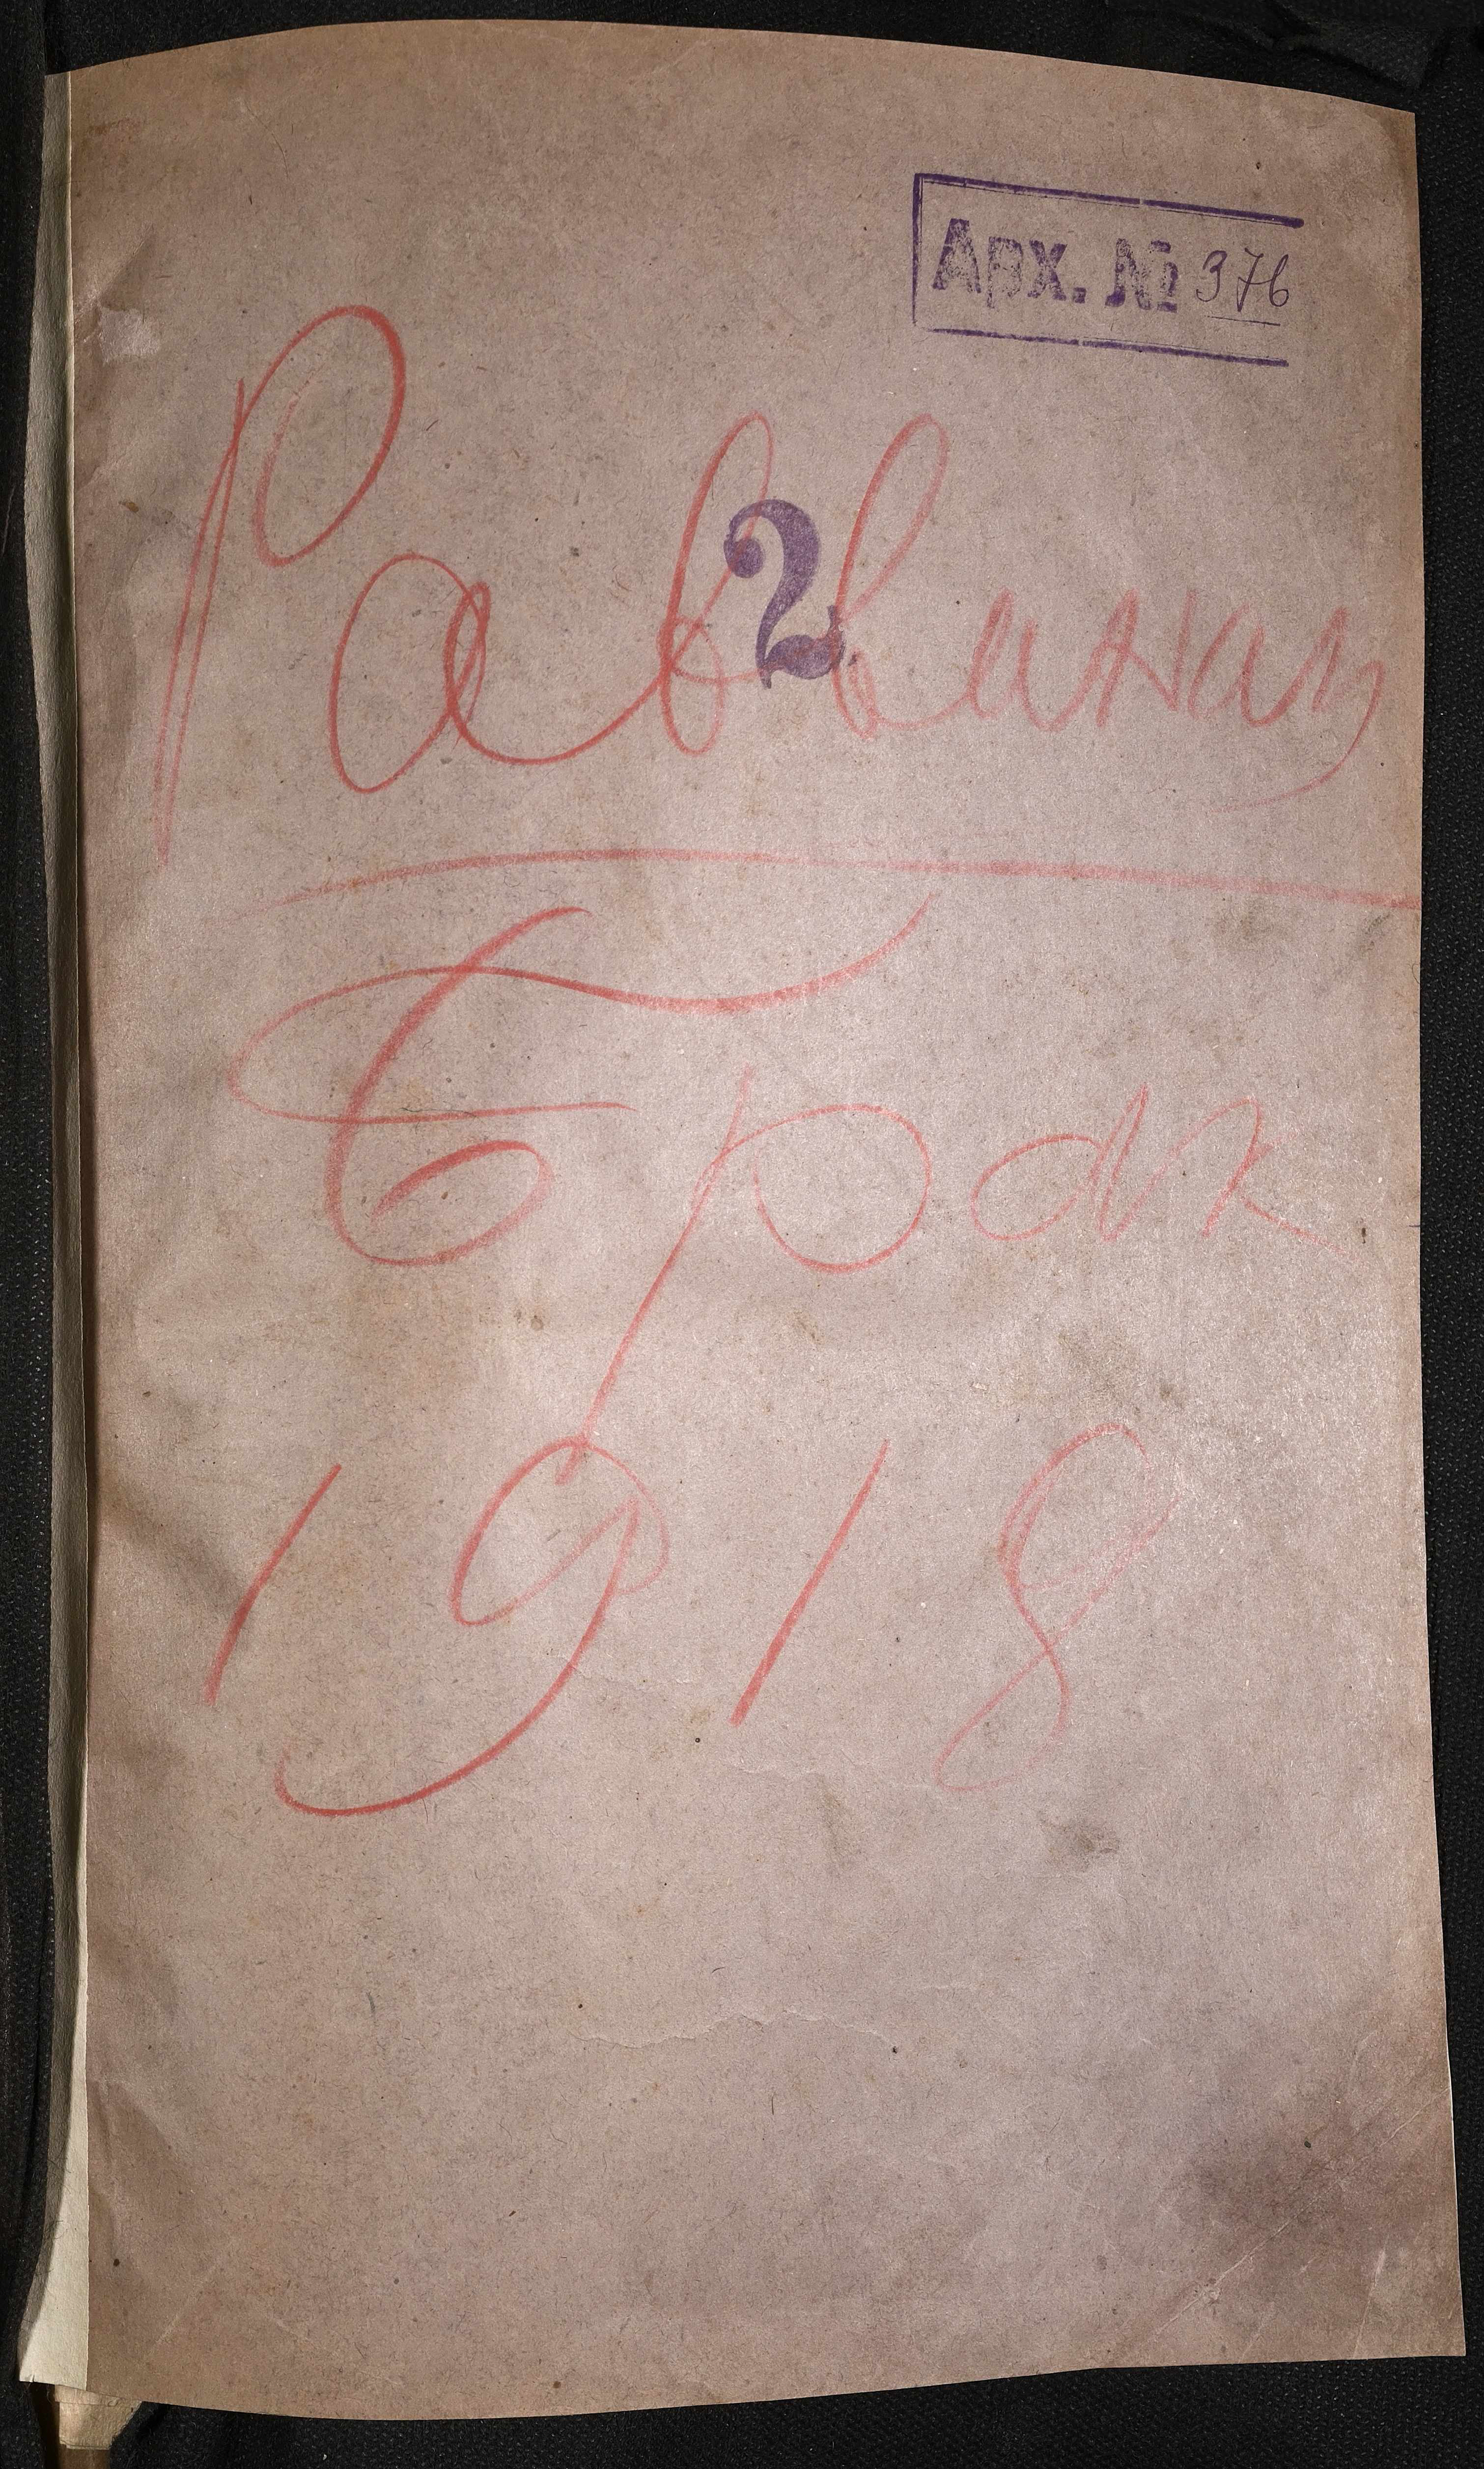 Арх. № 376
Раввинат
2
Брак
1918